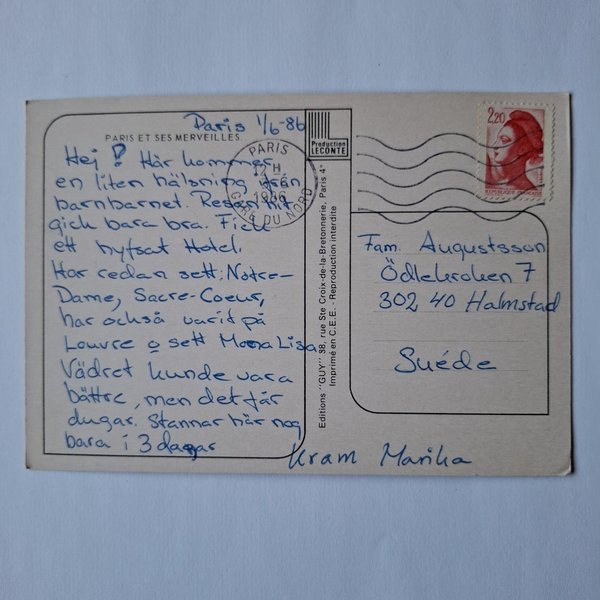 Paris 1/6-86
PARIS ET SES MERVEILLES
Hej! Här kommer
en liten hälsning från
barnbarnet. Resan hit
gick bara bra. Fick
ett hyfsat Hotel.
Har redan sett: Notre-
Dame, Sacre-Coeur,
har också varit på
Louvre o sett Mona Lisa
Vädret kunde vara
bättre, men det får
dugar. Stannar här nog
bara i 3 dagar
Kram Marika
Production
LECONTE
PARIS
12 H
1986
GARE DU NORD
Editions "GUY" 38, rue Ste Croix-de-la-Bretonnerie, Paris 4e
Imprimé en C.E.E. - Reproduction interdite
2,20
REPUBLIQUE FRANÇAISE
Fam. Augustsson
Ödlekroken 7
302 40 Halmstad
Suéde